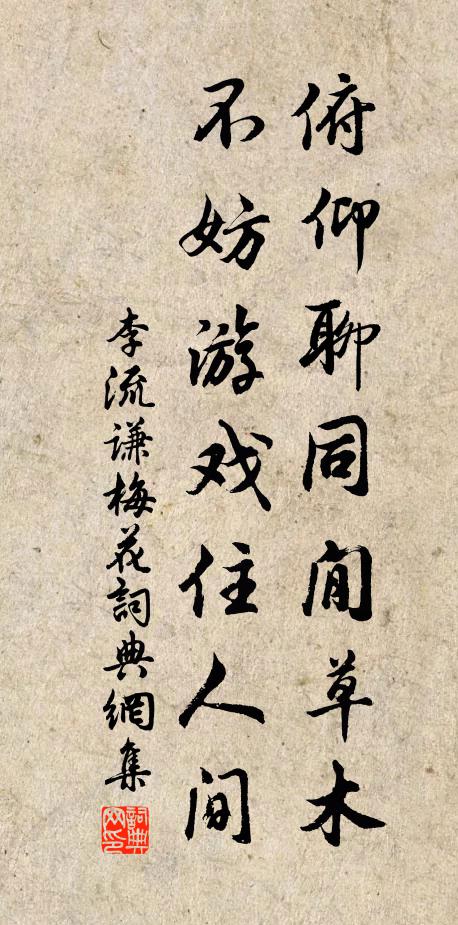 俯仰聊同閒草木
不妨游戏住人间
李流谦梅花詞典網集
詞典网印